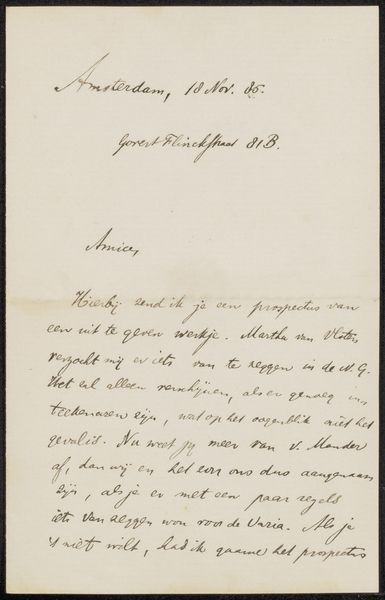 Amsterdam, 18 Nov. 86.
Govert Flinckstraat 81B.
Amice,
Hierbij zend ik je een prospectus van
een uit te geven werkje. Martha van Vloten
verzocht mij er iets van te zeggen in de N. G.
Het zal alleen verschijnen, als er genoeg in-
teekenaren zijn, wat op het oogenblik niet het
geval is. Nu weet jij meer van v. Mander
af, dan wij en het zou ons dus aangenaam
zijn, als je er met een paar regels
iets van zeggen wou voor de Varia. Als je
't niet wilt, had ik gaarne het prospectus